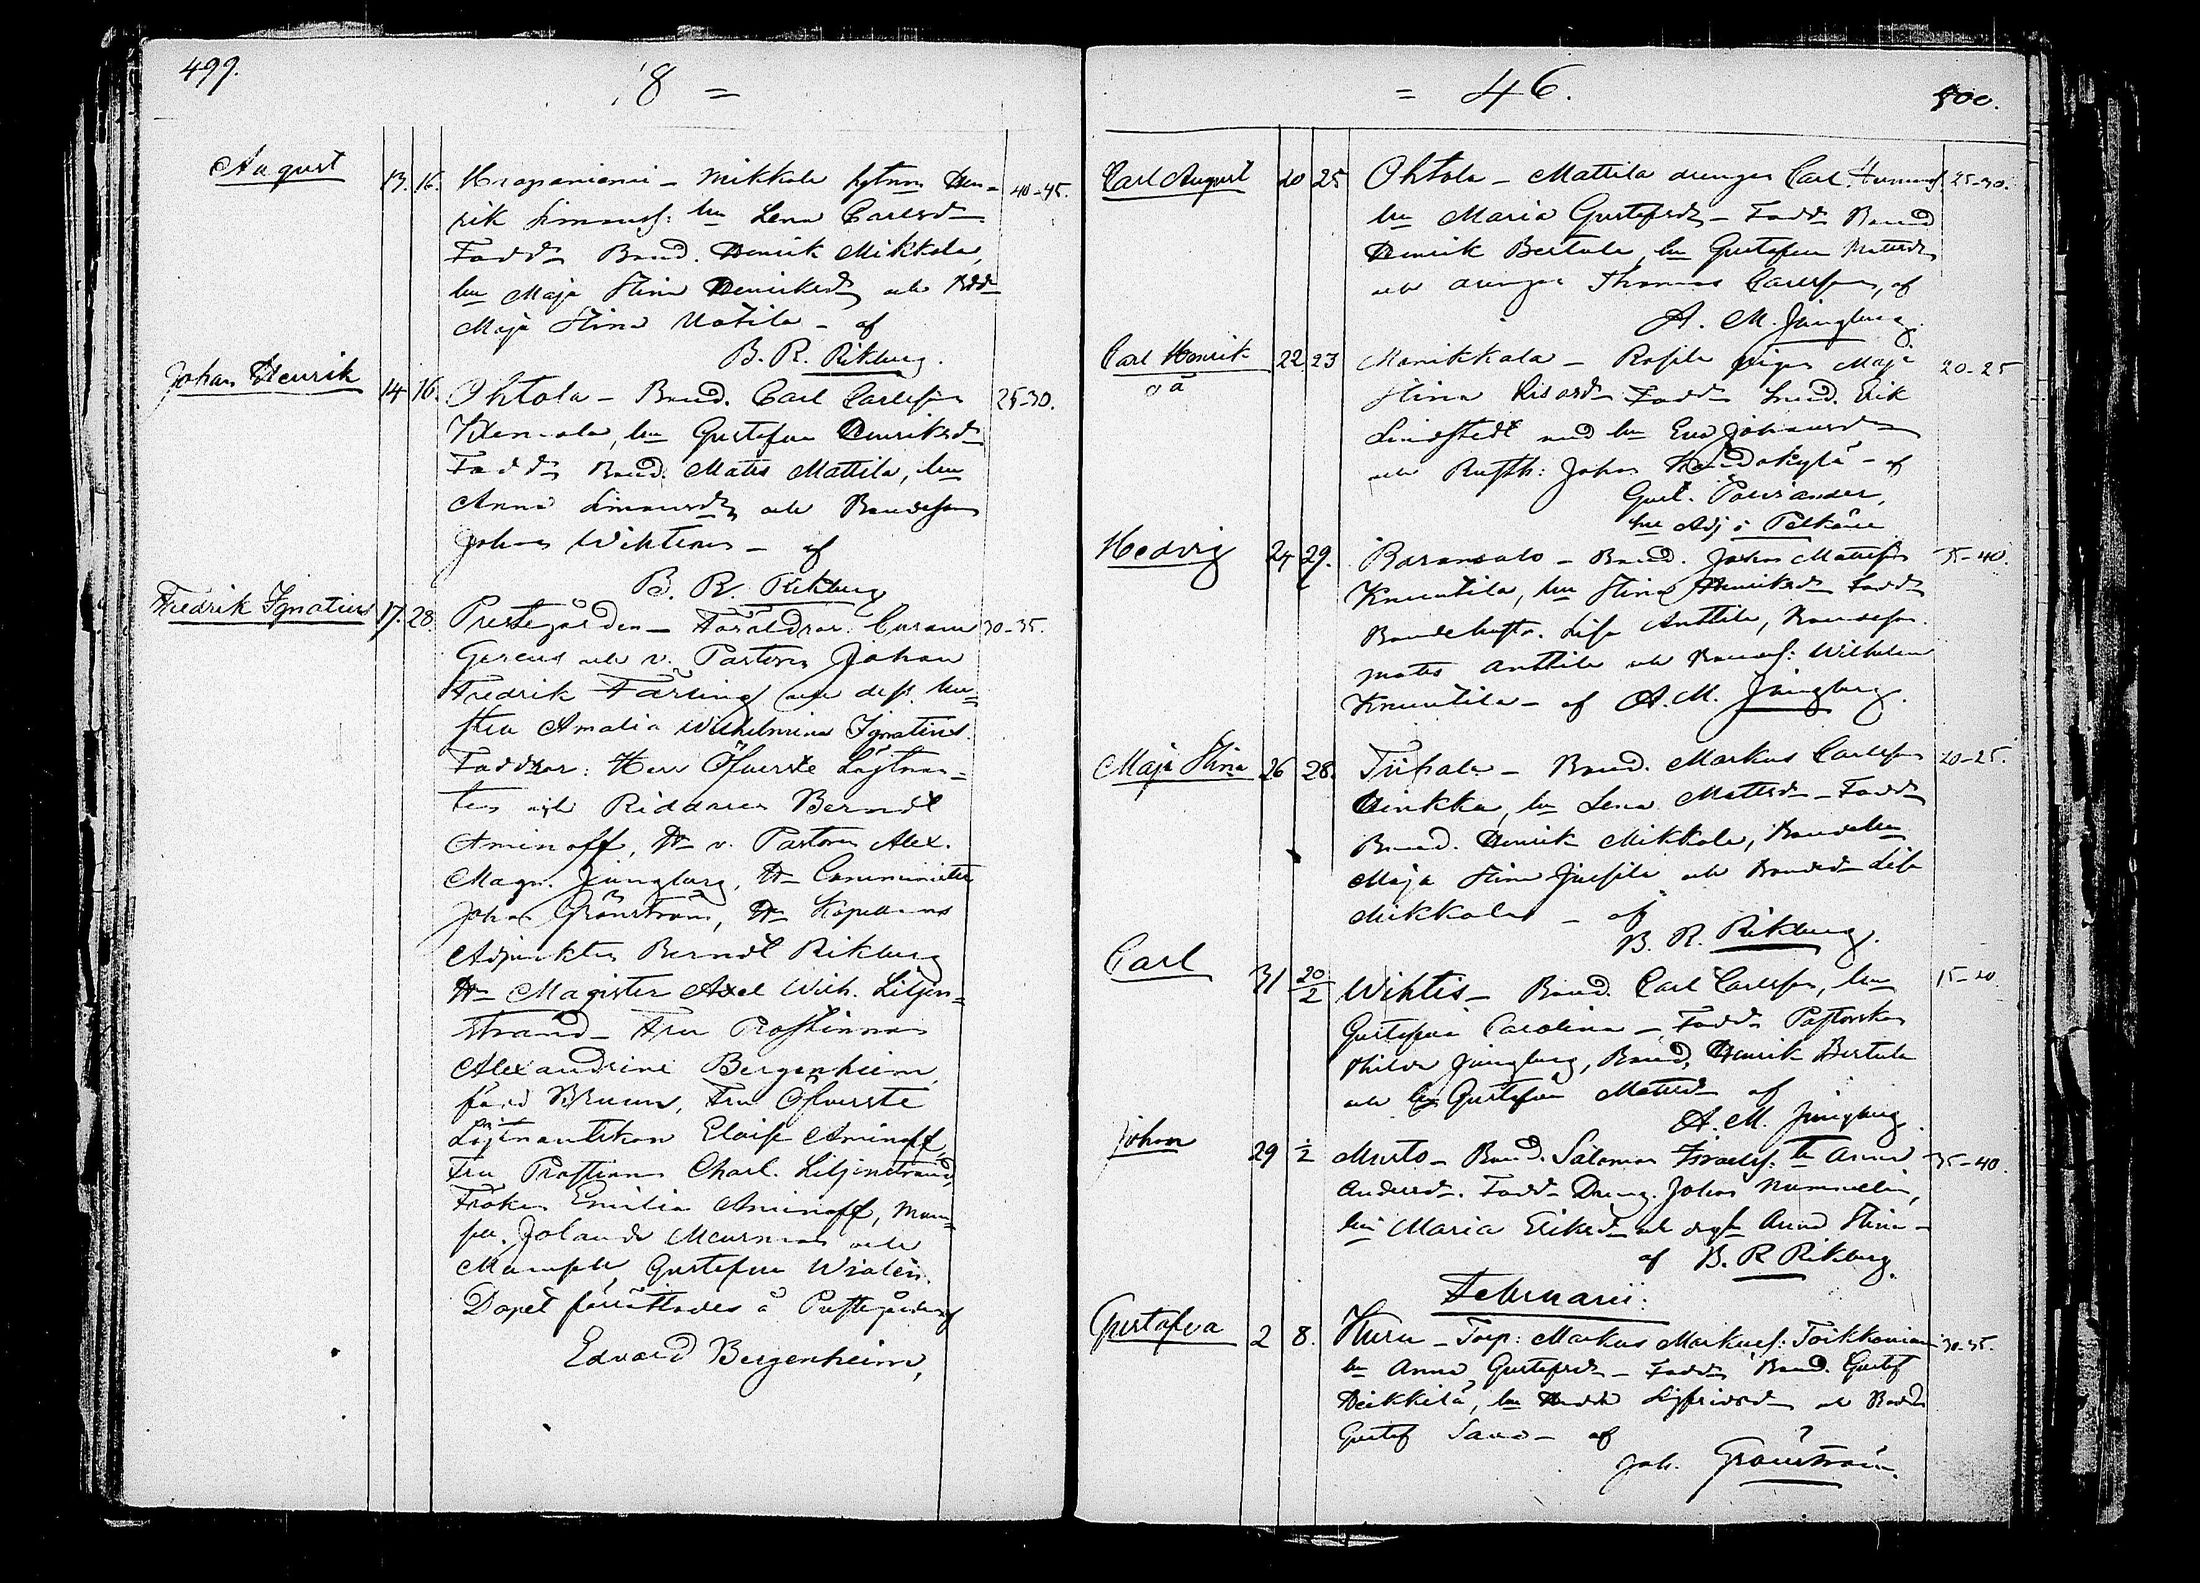 499.
18 =
August 13. 16. Haapaniemi - Mikkola hytman Hen= 40-45.
rik Simonsf: hu Lena Carlsdr
Fadd. Bond. Henrik Mikkola,
hu Maja Stina Henriksdr och
Maja Stina Uotila - af
B. R. Rikberg.
Johan Henrik 14 16. Ohtola - Bond. Carl Carlsson 25-30.
hu Gustafva Henriksdr
Fadd. Bond. Matts Mattila, hu
Anna Simonsdr och Bondeson
Johan Wihteris - af
B. R. Rikberg
Fredrik Ignatius 17. 28. Prestegården - Föräldrar: Curam 30-35.
Gerens och v. Pastorn Johan
Fredrik Färling och dess hu=
stru Amalia Wilhelmina Ignatius.
Faddrar: Herr Öfverste Löjtnan=
ten och Riddaren Berndt
Aminoff, Hr v. Pastorn Alex.
Magn. Jungberg, Hr Comminister
Johan Grönström, Hr Kapellans
Adjunkten Berndt Rikberg
Hr Magister Axel Wilh. Liljen=
strand - Fru Prostinnan
Alexandrine Bergenheim,
född Bruun, Fru Öfverste
Löjtnantskan Eloise Aminoff,
Fru Prostinnan Charl. Liljenstrand,
Fröken Emilia Aminoff, Mam=
sell Jolanda Meurman och
Mamsell Gustafva Widlén.
Dopet förrättades å Prestegården af
Edvard Bergenheim,
= 46.
500.
Carl August 20 25 Ohtola - Mattila drengen Carl 25-30.
hu Maria Gustafsdr - Fadd. Bond
Henrik Bertula, hu Gustafva Mattsdr
och drengen Thomas Carlsson, af
A. M. Jungberg.
Carl Henrik 22 23 Monikkala - Rosila pigan Maja 20-25
oä
Stina Fadd. Lund. Erik
Lindstedt med hu Eva Johansdr
och Rusth: Johan - af
Gust. Polviander,
v. Adj i Pelkäne
Hedvig 24 29. Baransalo - Bond. Johan Mattsson 35-40.
Knuutila, hu Stina Henriksdr Fadd.
Bondehustr. Lisa Anttila, Bondeson
Matts Anttila och Bondes: Wilhelm
Knuutila - af A. M. Jungberg.
Maja Stina 26 28. Bond. Markus Carlsson 20-25.
hu Lena Mattsdr - Fadd.
Bond. Henrik Mikkola, Bondehu
Maja Stina Jussila och Bondedr Lisa
Mikkola - af
B. R. Rikberg.
Carl 31 20/2 Wihtis - Bond. Carl Carlsson, hu 15-20
Gustafva Carolina - Fadd. Pastorskan
Thilda Jungberg, Bond. Henrik Bertula
och hu Gustafva Mattsdr af
A. M. Jungberg.
Johan 29 1/2 Murto - Bond. Salomon Israelsf: hu Anna 35-40.
Andersdr. Fadd. Dreng. Johan Nummelin,
hu Maria Eriksdr och Anna Stina -
af B. R Rikberg.
Februarii:
Gustafva 2 8. Huru - Torp: Markus Markusf: Toikkonian 30-35.
hu Anna Gustafsdr - Fadd. Bond. Gustaf
Heikkilä, hu Hedda Sigfridsdr och
Gustaf - af
Joh. Grönström.